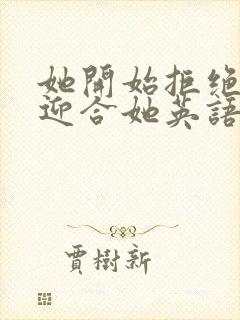 她開始拒絕
迎合她英語
賈樹新